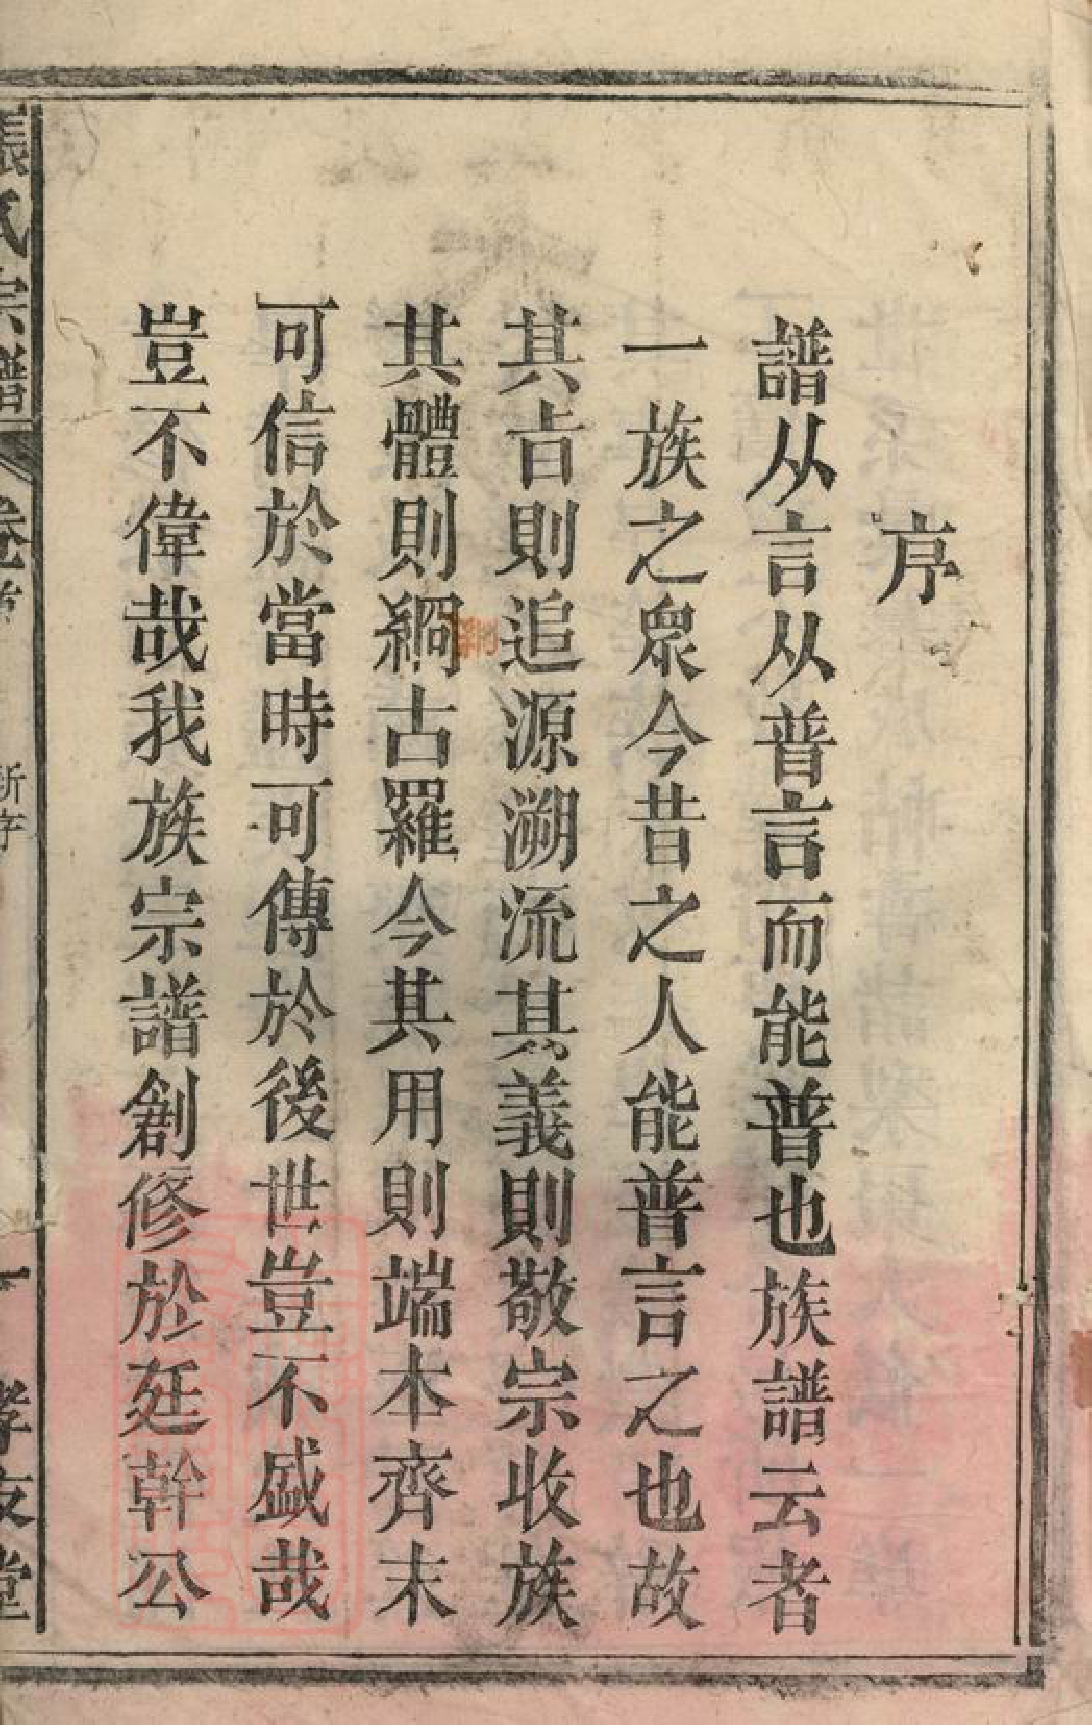 序
譜从言从普言而能普也族譜云者
一族之眾今昔之人能普言之也故
其㫖則追源溯流其義則敬宗收族
其體則綱古羅今其用則端本齊末
可信於當時可傳於後世豈不盛哉
豈不偉哉我族宗譜創修於廷幹公
張氏宗譜 卷首 新序 一 孝友堂